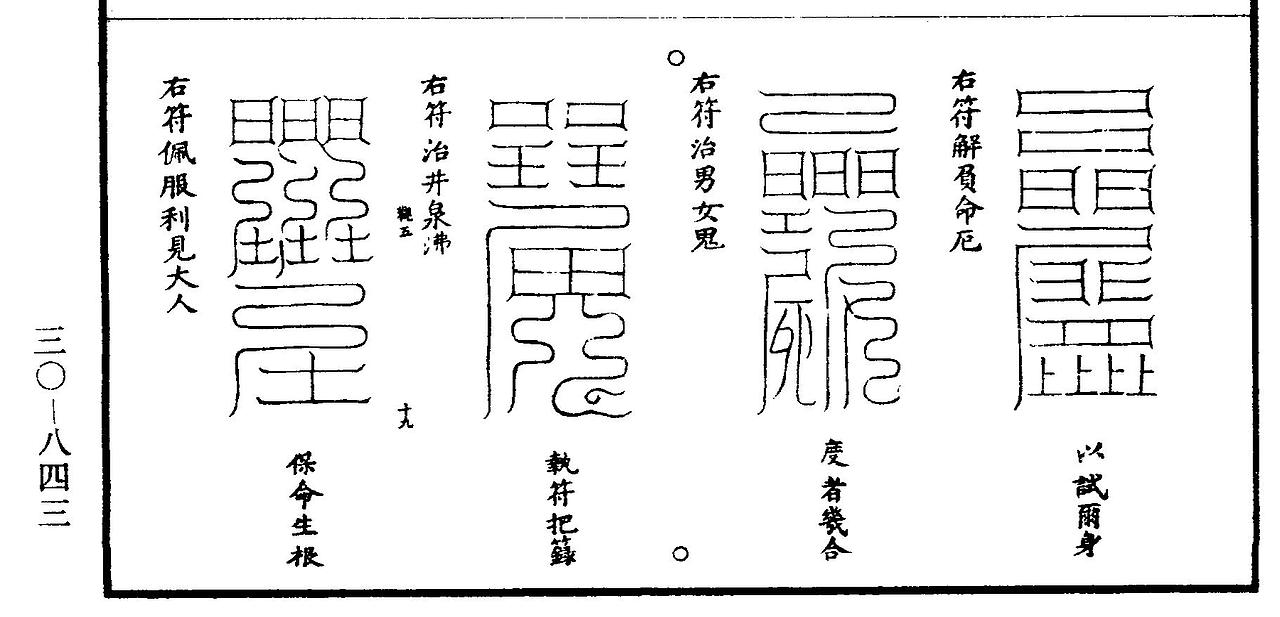 以試爾身
右符解負命厄
度者幾合
右符治男女鬼
執符把籙
右符治井泉沸
觀五
十九
保命生根
右符佩服利見大人
三〇—八四三